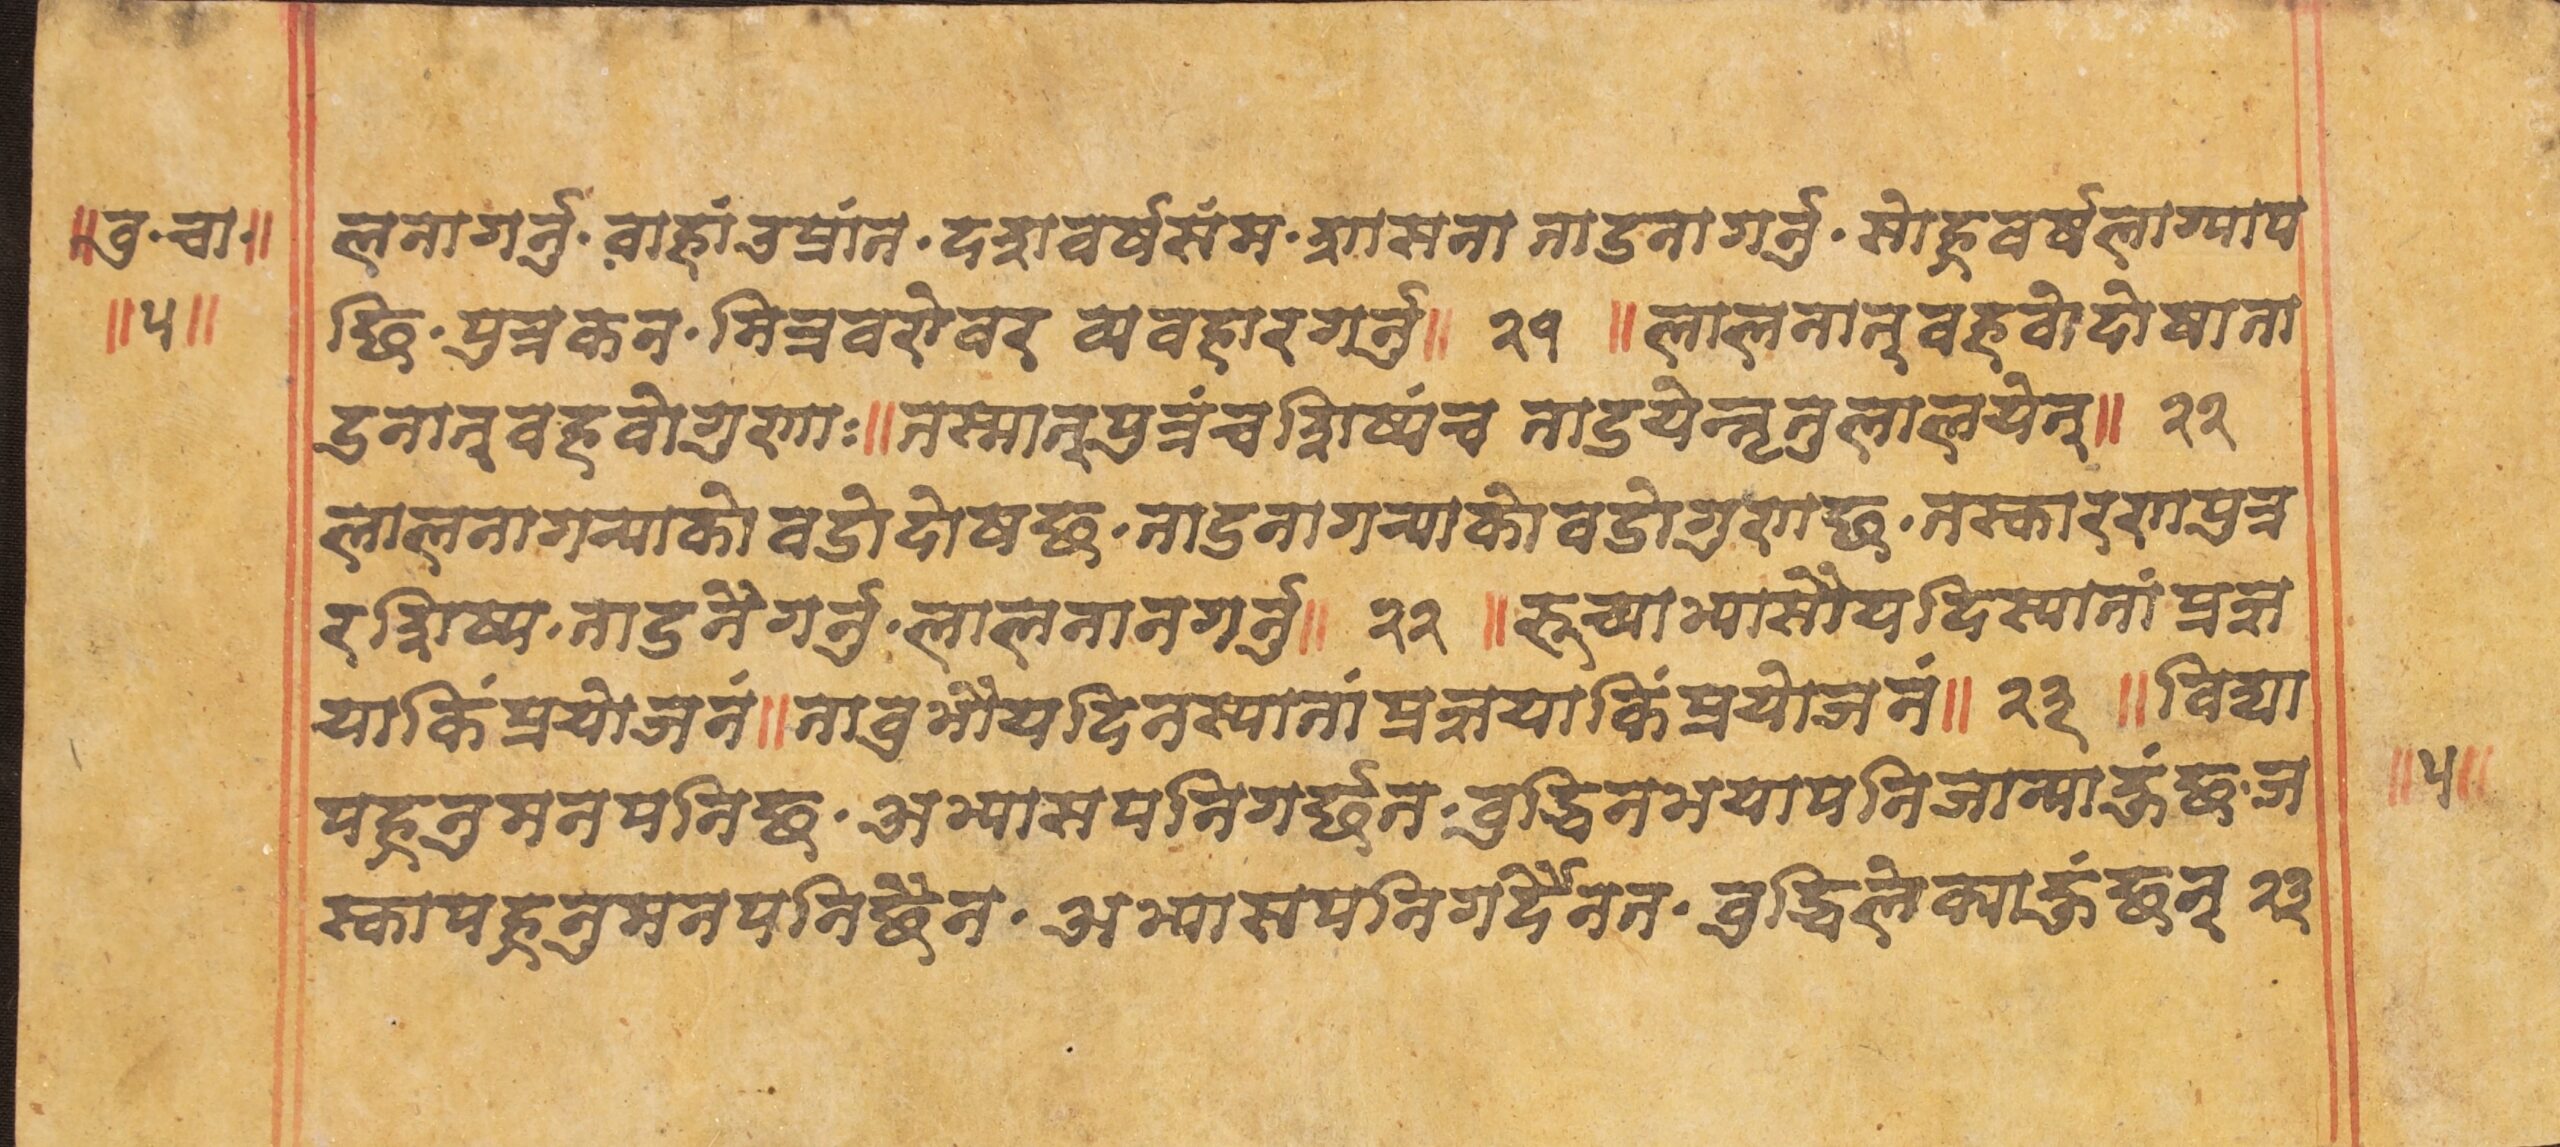 ॥वु·चा·॥
॥५॥
लनागर्नु·वाहां उप्रांत·दशवर्षसंम·शासना ताडनागर्नु·सोह्रवर्षलाग्यापछि
छि·पुत्रकन·मित्रवरोवर् व्यवहारगर्नु॥ २१ ॥लालनात्वहवोदोषाता
डनात्वहवोगुणाः॥तस्मात्पुत्रंचशिष्यंच ताडयेन्नतुलालयेत्॥ २२
लालनागर्न्याको वडोदोषछ·ताडनागर्न्याको वडोगुणछ·तस्कारणपुत्र
रशिष्य·ताडनैगर्नु·लालनानगर्नु॥ २२ ॥रूच्याभ्यासौयदिस्यातांप्रज्ञ
याकिंप्रयोजनं॥तावुभौयदिनस्यातांप्रज्ञयाकिंप्रयोजनं॥ २३ ॥विद्या
पह्रनुमनपनिछ·अभ्यासपनिगर्छन·वुद्धिनभयापनिजान्याहुंछ·ज
स्कापह्रनुमनपनिछैन·अभ्यासपनिगर्दैनन·वुद्धिलेक्याहुंछन् २३
॥५॥